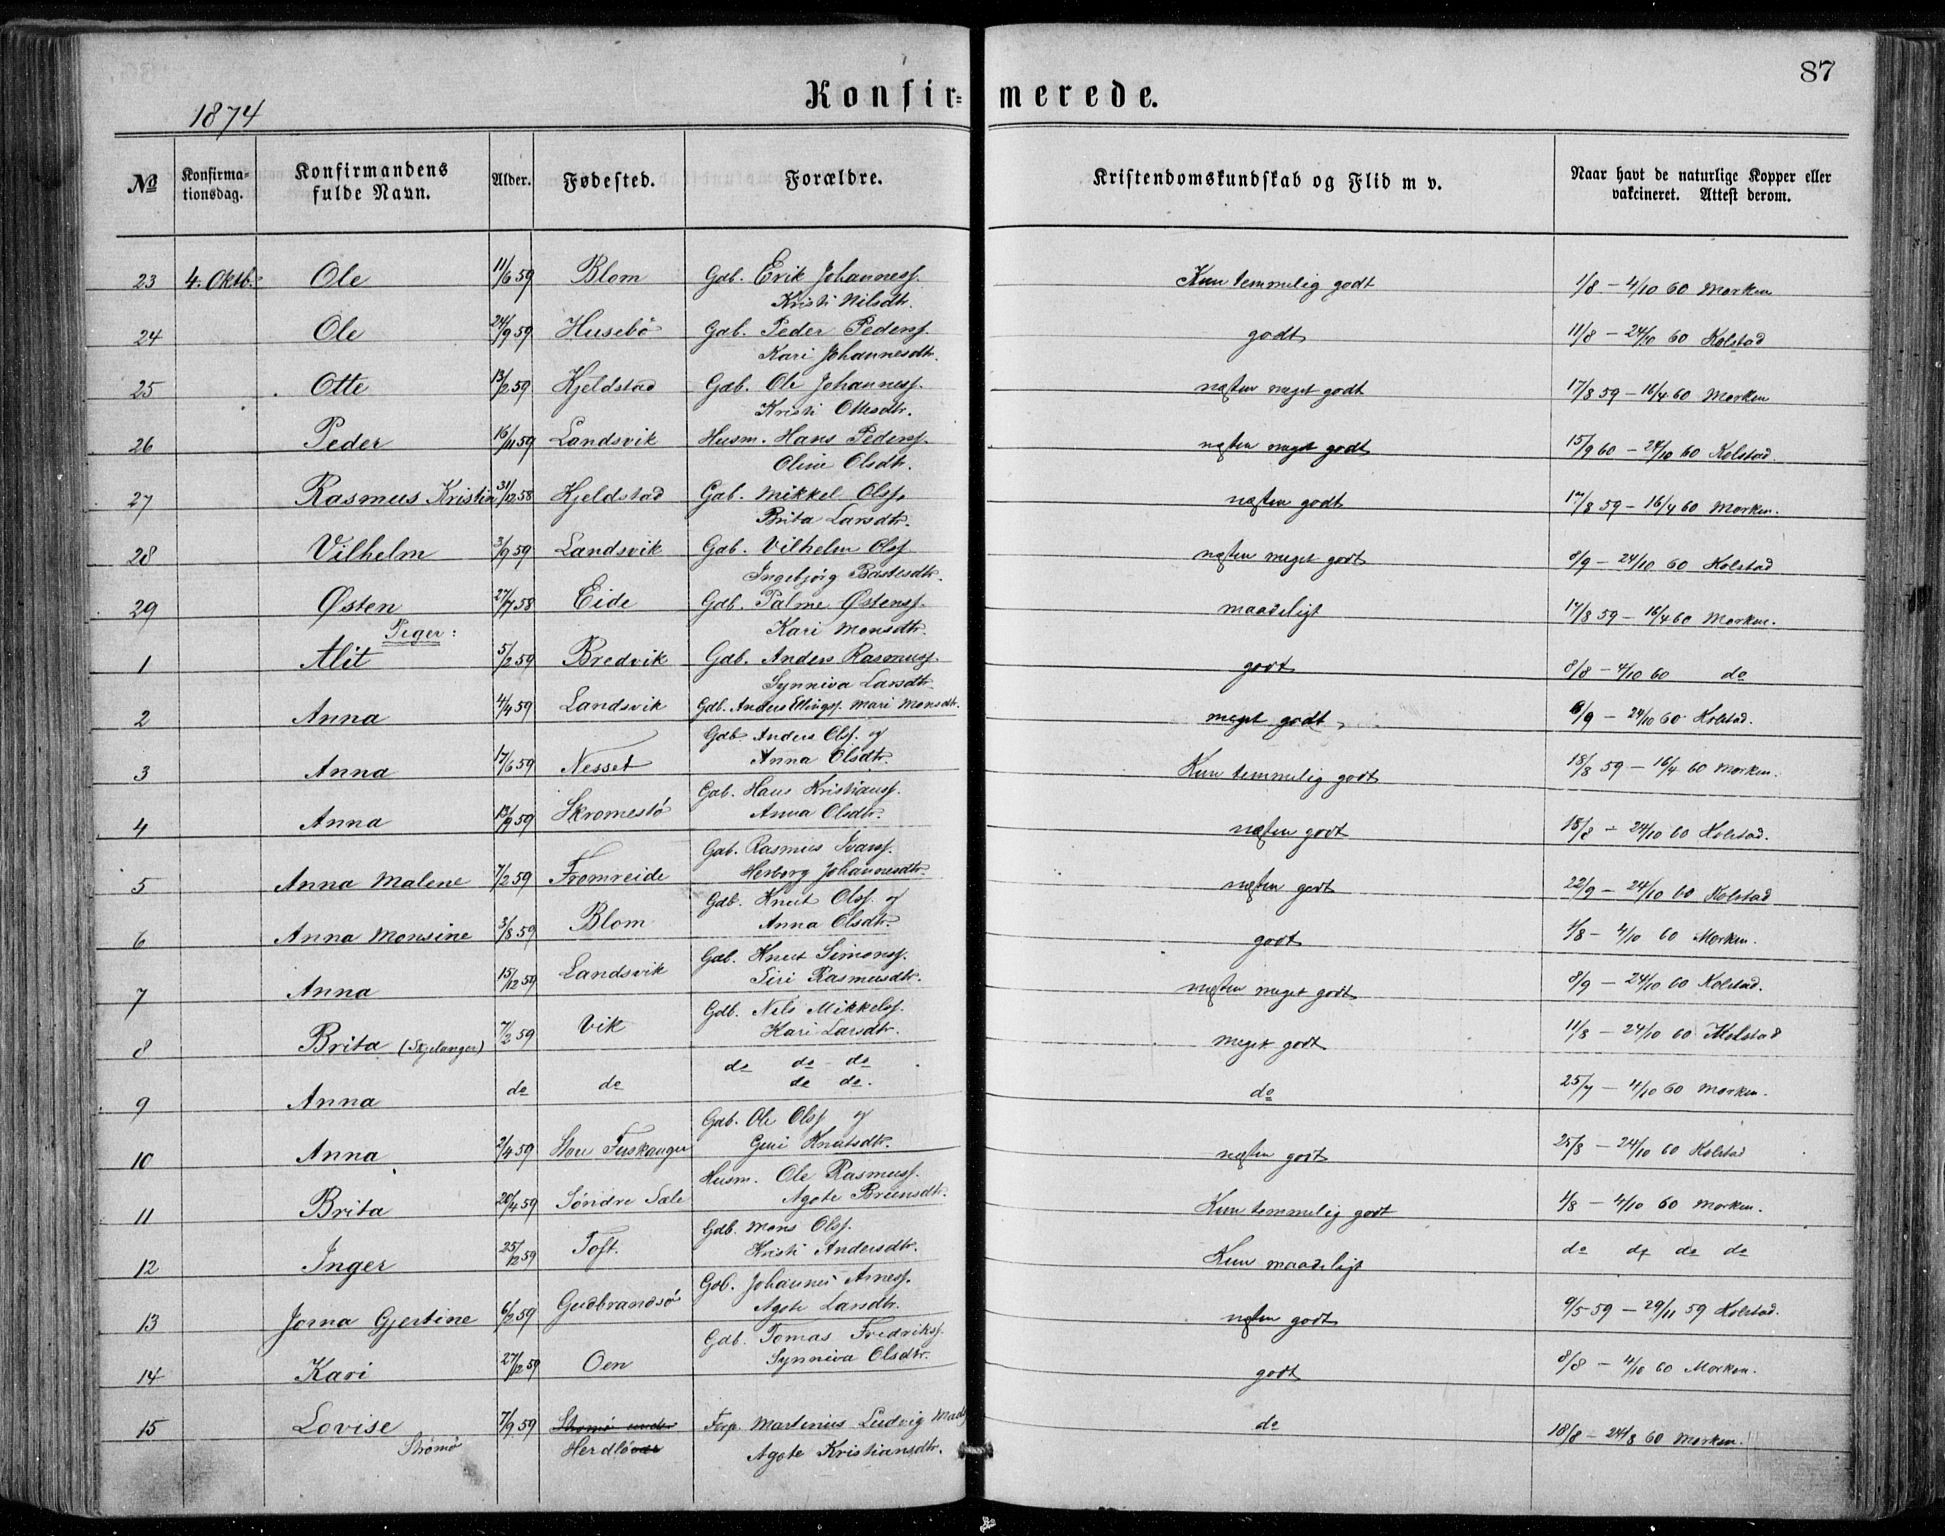 87
Konfirmerede.
1874
№ Konfirma-tionsdag. Konfirmandens fulde Navn. Alder. Fødested. Forældre. Kristendomskundskab og Flid m v. Naar havt de naturlige Kopper eller vakcineret. Attest derom.
23 4. Oktb. Ole 11/6 59 Blom Gdb. Erik Johannesf. Kun temmelig godt 1/8 – 4/10 60 Morken
Kristi Nilsdtr.
24 Ole 24/9 59 Husebö Gdb. Peder Pedersf. godt 11/8 – 24/10 60 Kolstad
Kari Johannesdtr.
25 Otte 13/2 59 Kjeldstad Gdb. Ole Johannesf. næsten meget godt 17/8 59 – 16/4 60 Morken
Kristi Ottesdtr.
26 Peder 16/11 59 Landsvik Husm. Hans Pedersf. næsten meget godt 15/9 60 – 24/10 60 Kolstad.
Oline Olsdtr.
27 Rasmus Kristian 31/12 58 Kjeldstad Gdb. Mikkel Olsf. næsten godt 17/8 59 – 16/4 60 Morken.
Brita Larsdtr.
28 Vilhelm 3/9 59 Landsvik Gdb. Vilhelm Olsf. næsten meget godt 8/9 – 24/10 60 Kolstad
Ingebjörg Bastesdtr.
29 Østen 27/7 58 Eide Gdb. Palme Østensf. maadeligt 17/8 59 – 16/4 60 Morken.
Kari Monsdtr.
Piger:
1 Alit 5/2 59 Bredvik Gdb. Anders Rasmusf. godt 8/8 – 4/10 60 do
Synniva Larsdtr.
2 Anna 4/4 59 Landsvik Gdb. Anders Ellingsf. Mari Monsdtr. meget godt 8/9 – 24/10 60 Kolstad.
Gdb. Anders Olsf. og
3 Anna 17/6 59 Nesset Anna Olsdtr. Kun temmelig godt 18/8 59 – 16/4 60 Morken.
Gdb. Hans Kristiansf.
4 Anna 13/9 59 Skromestö Anna Olsdtr. næsten godt 18/8 – 24/10 60 Kolstad.
Gdb. Rasmus Ivarsf.
5 Anna Malene 7/2 59 Fromreide Herborg Johannesdtr. næsten godt 22/9 – 24/10 60 Kolstad
Gdb. Knut Olsf. og
6 Anna Monsine 3/8 59 Blom Anna Olsdtr. godt 1/8 – 4/10 60 Morken.
Gdb. Knut Simonsf.
7 Anna 15/12 59 Landsvik Siri Rasmusdtr. næsten meget godt 8/9 – 24/10 60 Kolstad.
Gdb. Nils Mikkelsf.
8 Brita (Skjelanger) 7/2 59 Vik Kari Larsdtr. meget godt 11/8 – 24/10 60 Kolstad
do do do
9 Anna do do do do. do 25/7 – 4/10 60 Morken.
Gdb. Ole Olsf. og
10 Anna 2/4 59 Store Fuskanger Guri Knutsdtr. næsten godt 25/8 – 24/10 60 Kolstad
Husm. Ole Rasmusf.
11 Brita 20/4 59 Söndre Sæle Agote Brunsdtr. Kun temmelig godt 1/8 – 4/10 60 Morken.
Gdb. Mons Olsf.
12 Inger 25/12 59 Toft. Kristi Andersdtr. Kun maadeligt do do do do
Gdb. Johannes Arnesf.
13 Jorna Gjertine 6/2 59 Gudbrandsö Agote Larsdtr. næsten godt 9/5 59 – 29/11 59 Kolstad.
Gdb. Tomas Fredriksf.
14 Kari 27/12 59 Oen Synniva Olsdtr. godt 8/8 – 4/10 60 Morken.
15 Lovise 7/9 59 Strömö under Forp. Martinius Ludvig Mads do 18/8 – 24/8 60 Morken.
Strömö Herdlövær Agote Kristiansdtr.